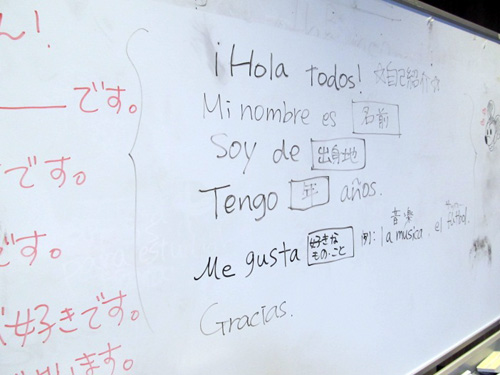 ん!
です。
です。
です。
好きです。
します。
¡Hola todos! ☆自己紹介☆
Mi nombre es 名前
Soy de 出身地
Tengo 年 años.
音楽
Me gusta 好きなもの・こと 例: la musica, el fútbol.
Gracias.